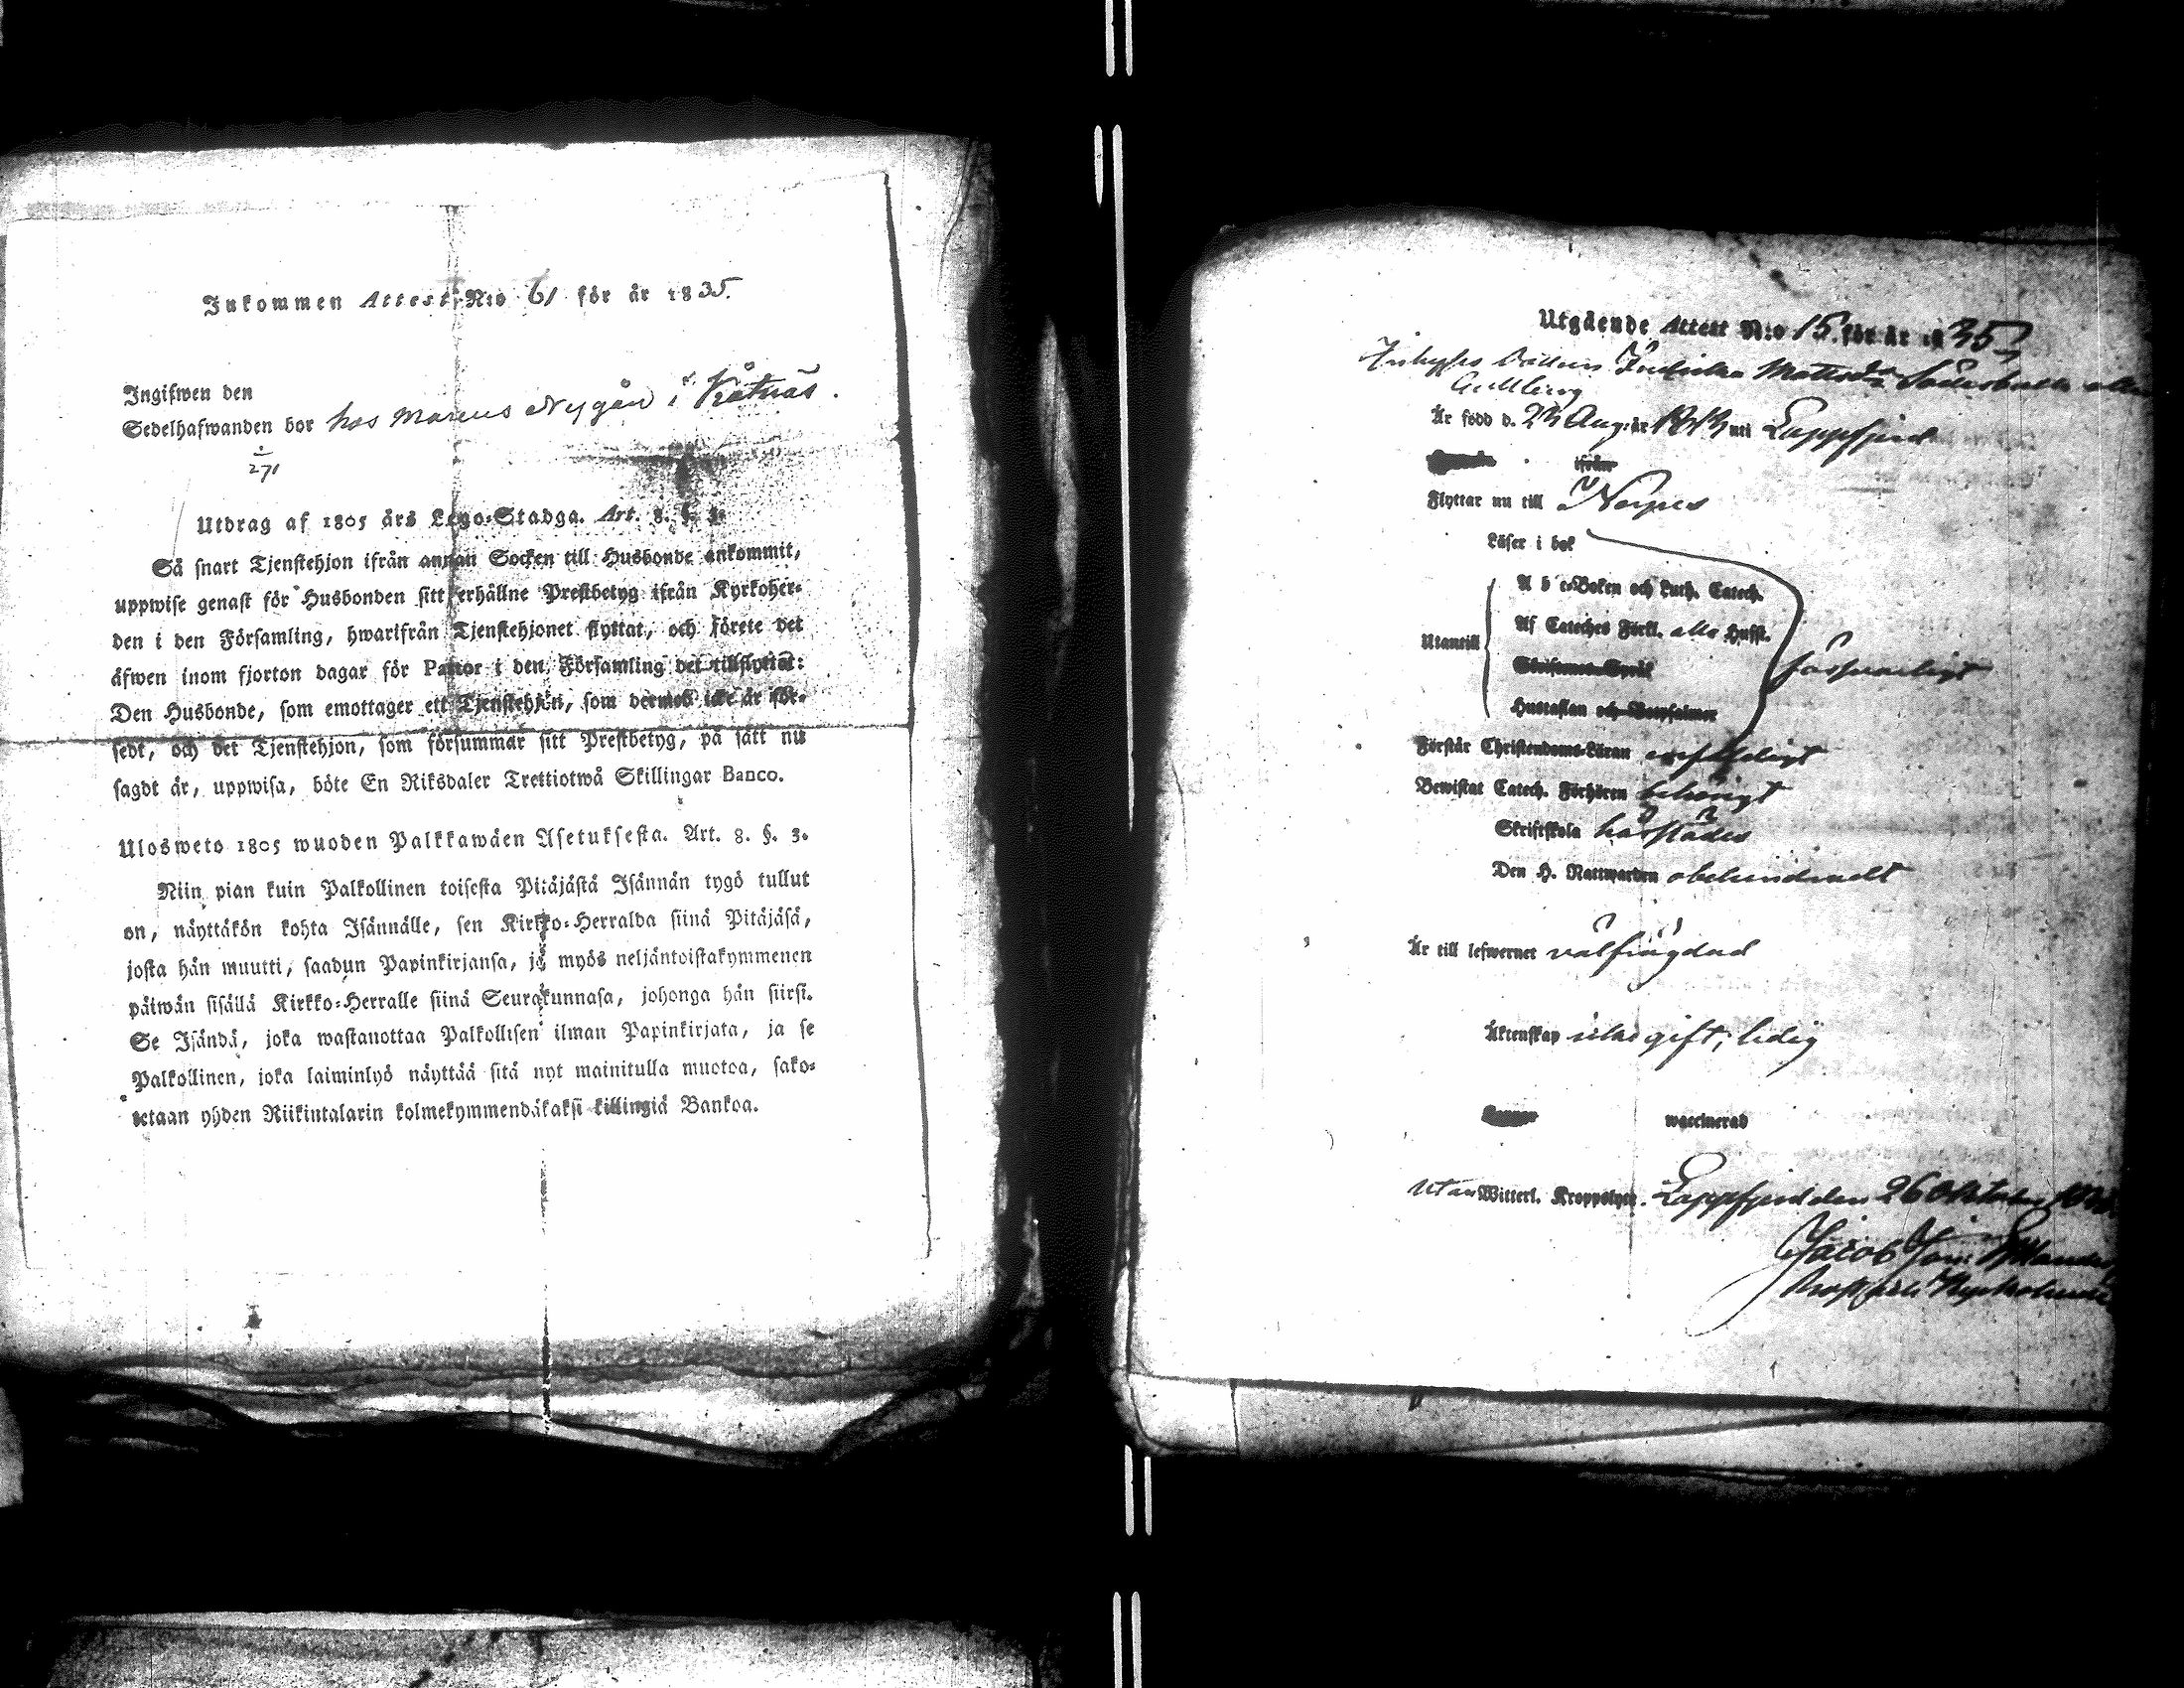 Inkommen Attest N:o 61 för år 1835.
Ingifwen den
Sedelhafwanden bor hos Marcus Nygård i Kåtnäs.
271
Utdrag af 1805 års Lego-Stadga. Art. 8. §. 3.
Så snart Tjenstehjon ifrån annan Socken till Husbonde ankommit,
uppwise genast för Husbonden sitt erhållne Prestbetyg ifrån Kyrkoher-
den i den Församling, hwarifrån Tjenstehjonet flyttat, och förete det
äfwen inom fjorton dagar för Pastor i den Församling det tillflyttat:
Den Husbonde, som emottager ett Tjenstehjon, som dermed icke är för-
sedt, och det Tjenstehjon, som försummar sitt Prestbetyg, på sätt nu
sagdt är, uppwisa, böte En Riksdaler Trettiotwå Skillingar Banco.
Ulosweto 1805 wuoden Palkkawäen Asetuksesta. Art. 8. §. 3.
Niin pian kuin Palkollinen toisesta Pitäjästä Isännän tygö tullut
on, näyttäkön kohta Isännälle, sen Kirkko-Herralda siinä Pitäjäsä,
josta hän muutti, saadun Papinkirjansa, ja myös neljäntoistakymmenen
päiwän sisällä Kirkko-Herralle siinä Seurakunnasa, johonga hän siirsi.
Se Isändä, joka wastanottaa Palkollisen ilman Papinkirjata, ja se
Palkollinen, joka laiminlyö näyttää sitä nyt mainitulla muotoa, sako-
tetaan yhden Riikintalarin kolmekymmendäkaksi killingiä Bankoa.
Utgående Attest N:o 15 för år 1835
Inhyses Mattsd:r Söderback
Är född d. 23 Aug. år 1813 uti Lappfjerd
ifrån
Flyttar nu till Nerpes
Läser i bok
A b c-Boken och Luth. Catech.
Utantill
Af Cateches Förkl. alla Hufst.
försvarligt
Skriftenes Språk
Hustaflan och Botpsalmer
Förstår Christendoms-Läran enfaldigt
Bewistat Catech. Förhören behörigt
Skriftskola härstädes
Den H. Nattwarden obehindradt
Är till lefwernet välfrägdad
Äktenskap icke gift, ledig
waccinerad
utan Witterl. Kroppslyte. Lappfjerd den 26 Oktober
Jacob